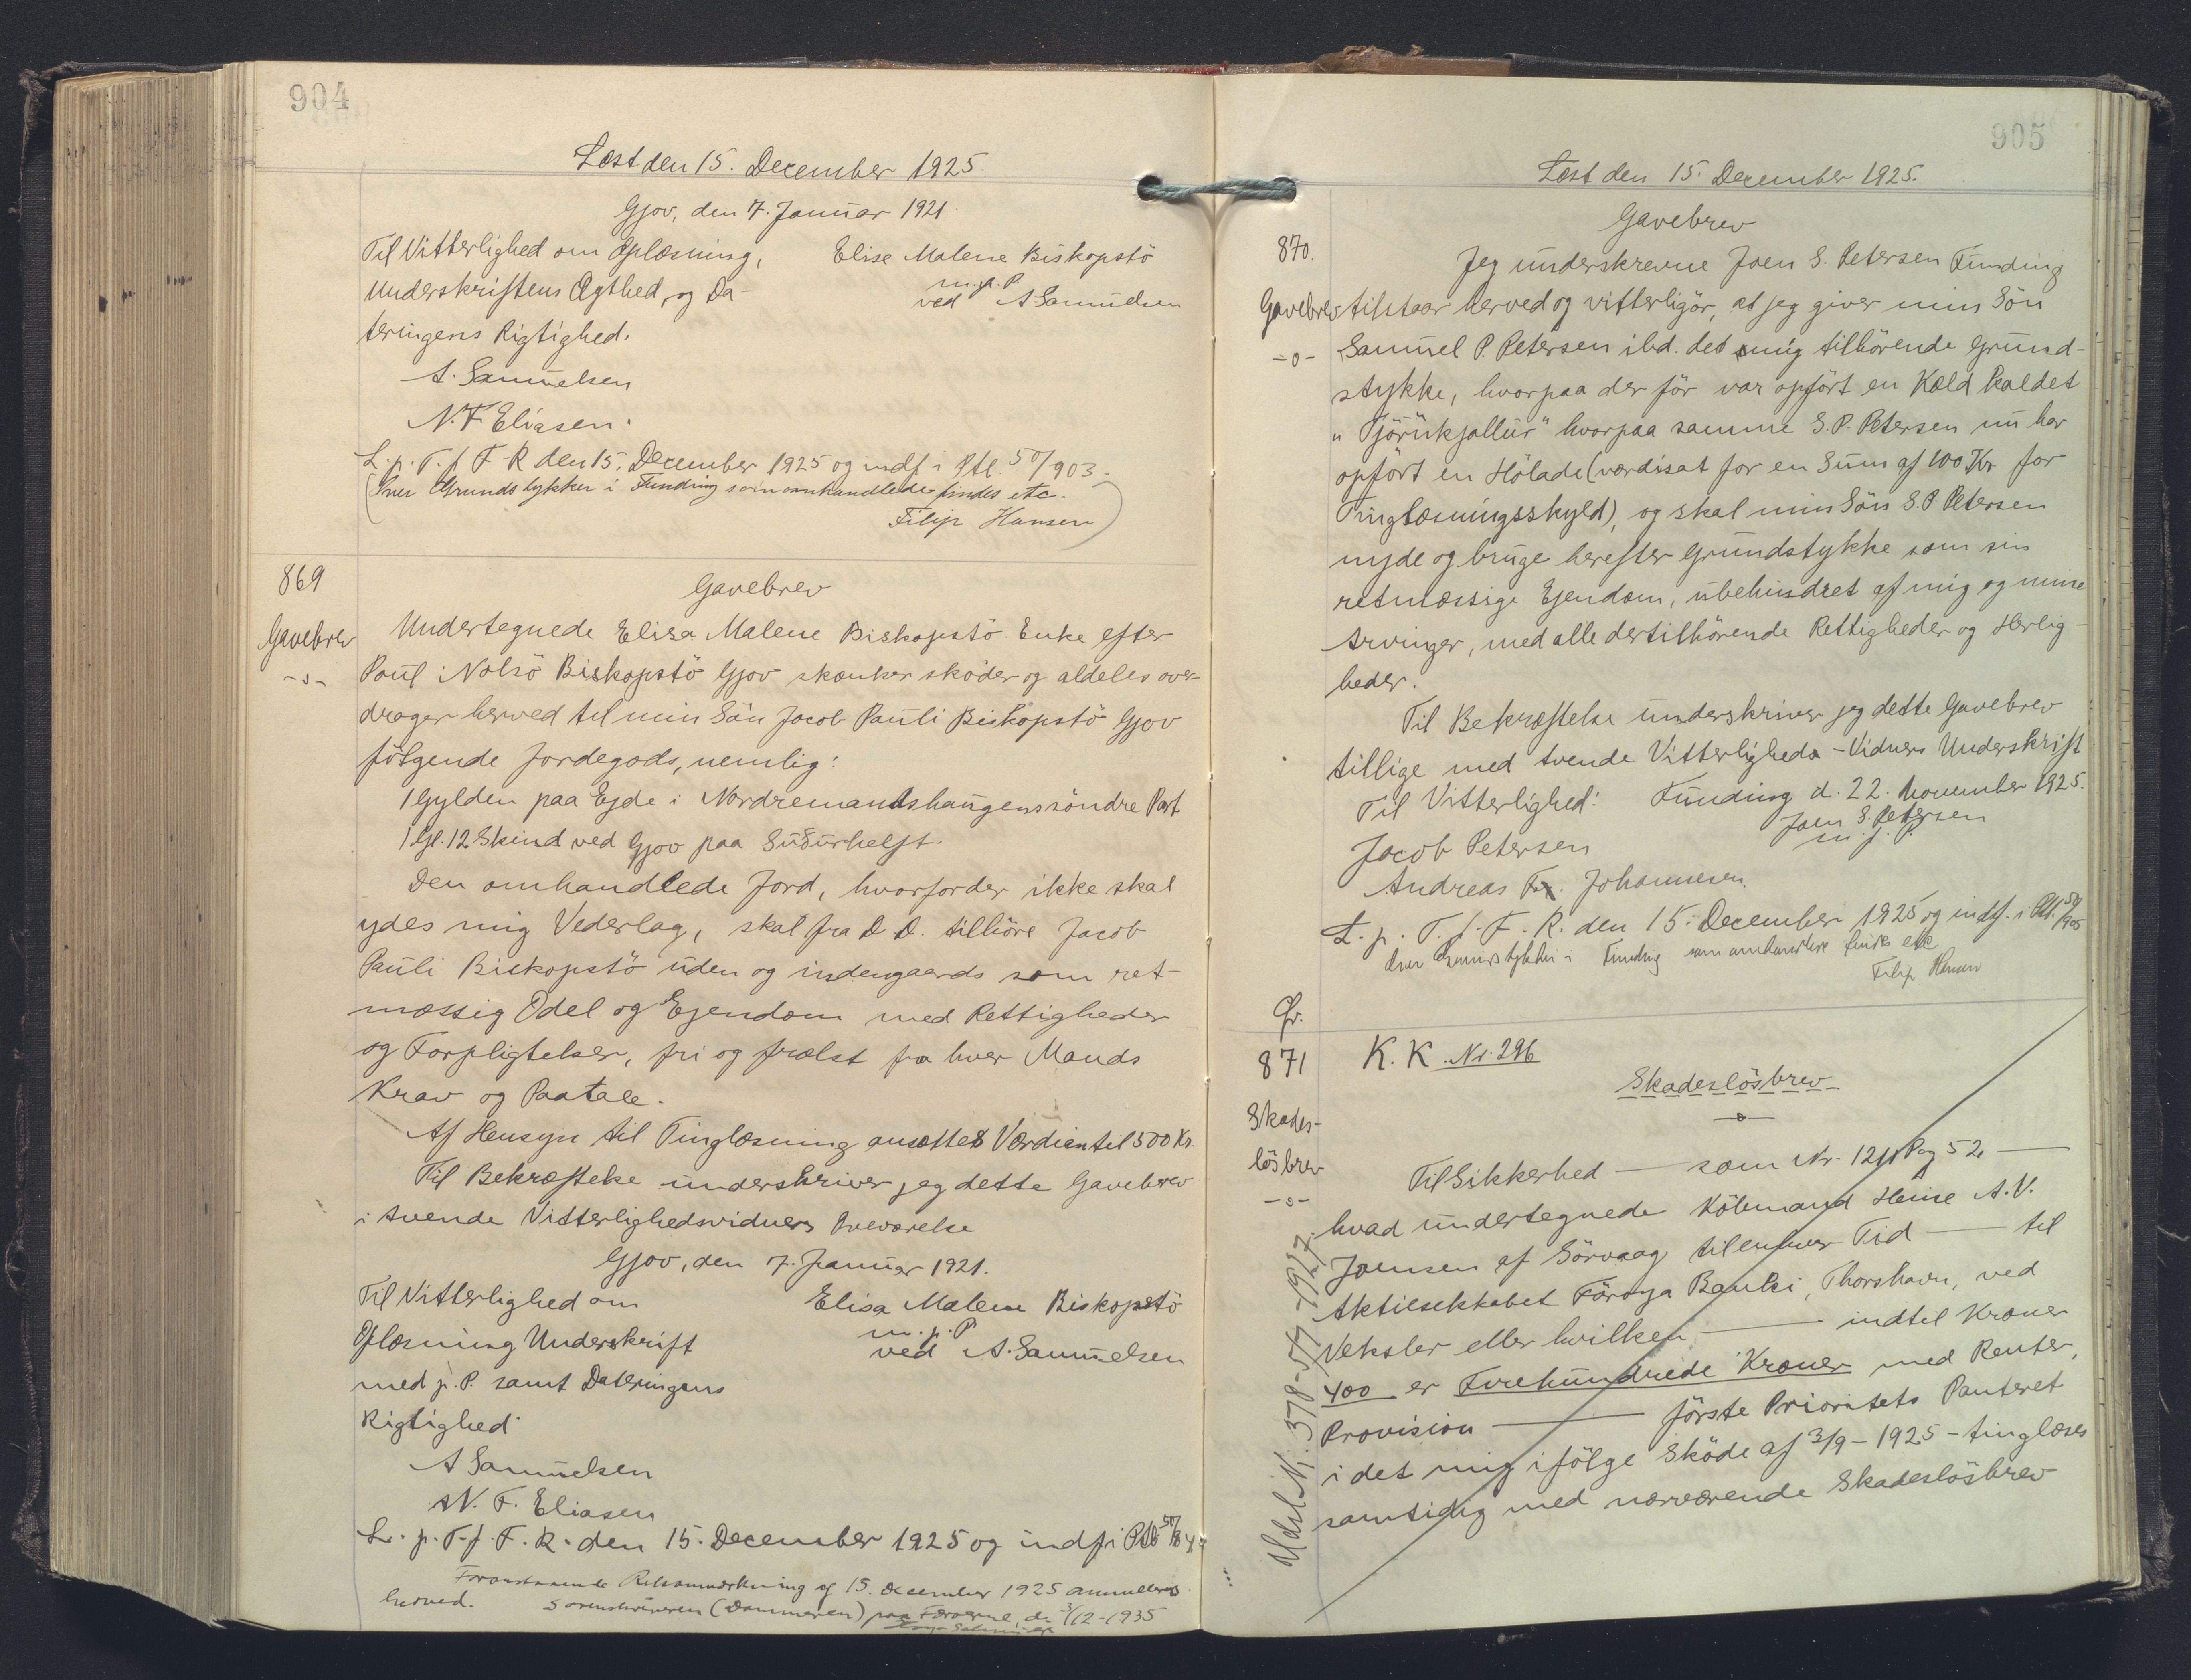 904
Læst den 15. December 1925.
Gjov, den 7. Januar 1921.
Til Vitterlighed om Oplæsning,
Underskriftens Ægthed, og Da-
teringens Rigtighed.
Elise Malene Biskopstö
m.p.P.
ved A Samuelsen
A. Samuelsen
N. F. Eliasen.
L. p. T. f. F. R. den 15. December 1925 og indf i Ptl. 50/903.
(Hver Grundstykker i Funding som omhandlede findes etc.
Filip Hansen)
869
Gavebrev
-o-
Gavebrev
Undertegnede Elisa Malene Biskopstö Enke efter
Poul i Nolsö Biskopstö Gjov skænker sköder og aldeles over-
drager herved til min Sön Jacob Pauli Biskopstö Gjov
fölgende Jordegods, nemlig:
1 Gylden paa Ejde i Nordremandshaugens söndre Part
1 Gl. 12 Skind ved Gjov paa Suðurhelft.
Den omhandlede Jord, hvorfor der ikke skal
ydes mig Vederlag, skal fra D. D. tilhöre Jacob
Pauli Biskopstö uden og indengaards som ret-
mæssig Odel og Ejendom med Rettigheder
og Forpligtelser, fri og frælst fra hver Mands
Krav og Paatale.
Af Hensyn til Tinglæsning ansættes Værdien til 500 Kr.
Til Bekræftelse underskriver jeg dette Gavebrev
i tvende Vitterlighedsvidners Overværelse
Gjov, den 7. Januar 1921.
Til Vitterlighed om
Oplæsning Underskrift
med p. P. samt Dateringens
Rigtighed
Elisa Malene Biskopstö
m. p. P
ved A. Samuelsen
A Samuelsen
N. F. Eliasen
L. p. T. f. F. R. den 15. December 1925 og indf i Ptl.
Foranstaaende Retsanmærkning af 15. December 1925 annulleres
herved. Sorenskriveren (Dommeren) paa Færöerne, d. 3/12-1935
905
Læst den 15. December 1925.
870.
Gavebrev
-o-
Gavebrev
Jeg underskrevne Joen S. Petersen Funding
tilstaar herved og vitterligör, at jeg giver min Sön
Samuel P. Petersen ibd. det mig tilhörende Grund-
stykke, hvorpaa der för var opfört en Kæld kaldet
"Tjörukjallur" hvorpaa samme S. P. Petersen nu har
opfört en Hölade (værdisat for en Sum af 100 Kr for
Tinglæsningsskyld), og skal min Sön S. P. Petersen
nyde og bruge herefter Grundstykke som sin
retmæssige Ejendom, ubehindret af mig og mine
Arvinger, med alle dertilhörende Rettigheder og Herlig-
heder.
Til Bekræftelse underskriver jeg dette Gavebrev
tillige med tvende Vitterligheds-Vidners Underskrift
Til Vitterlighed: Funding d. 22. November 1925.
Joen S. Petersen
m. f. P.
Jacob Petersen
Andreas Fr. Johannesen.
L. p. T. f. F. R. den 15. December 1925 og indf. i Ptl. 50/905
Hver Grundstykker i Funding som omhandlede findes etc
Filip Hansen
Qv.
871
Skades-
lösbrev
-o-
K. K. Nr. 296
Skadeslösbrev
Til Sikkerhed — som Nr. 121 Pag 52 —
hvad undertegnede Köbmand Heine A. V.
Joensen af Sörvaag til enhver Tid — til
Aktieselskabet Föroya Banki, Thorshavn, ved
Veksler eller hvilken — indtil Kroner
400 er Firehundrede Kroner med Renter,
Provision — förste Prioritets Panteret
i det mig ifölge Sköde af 3/9-1925 - tinglæses
samtidig med nærværende Skadeslösbrev